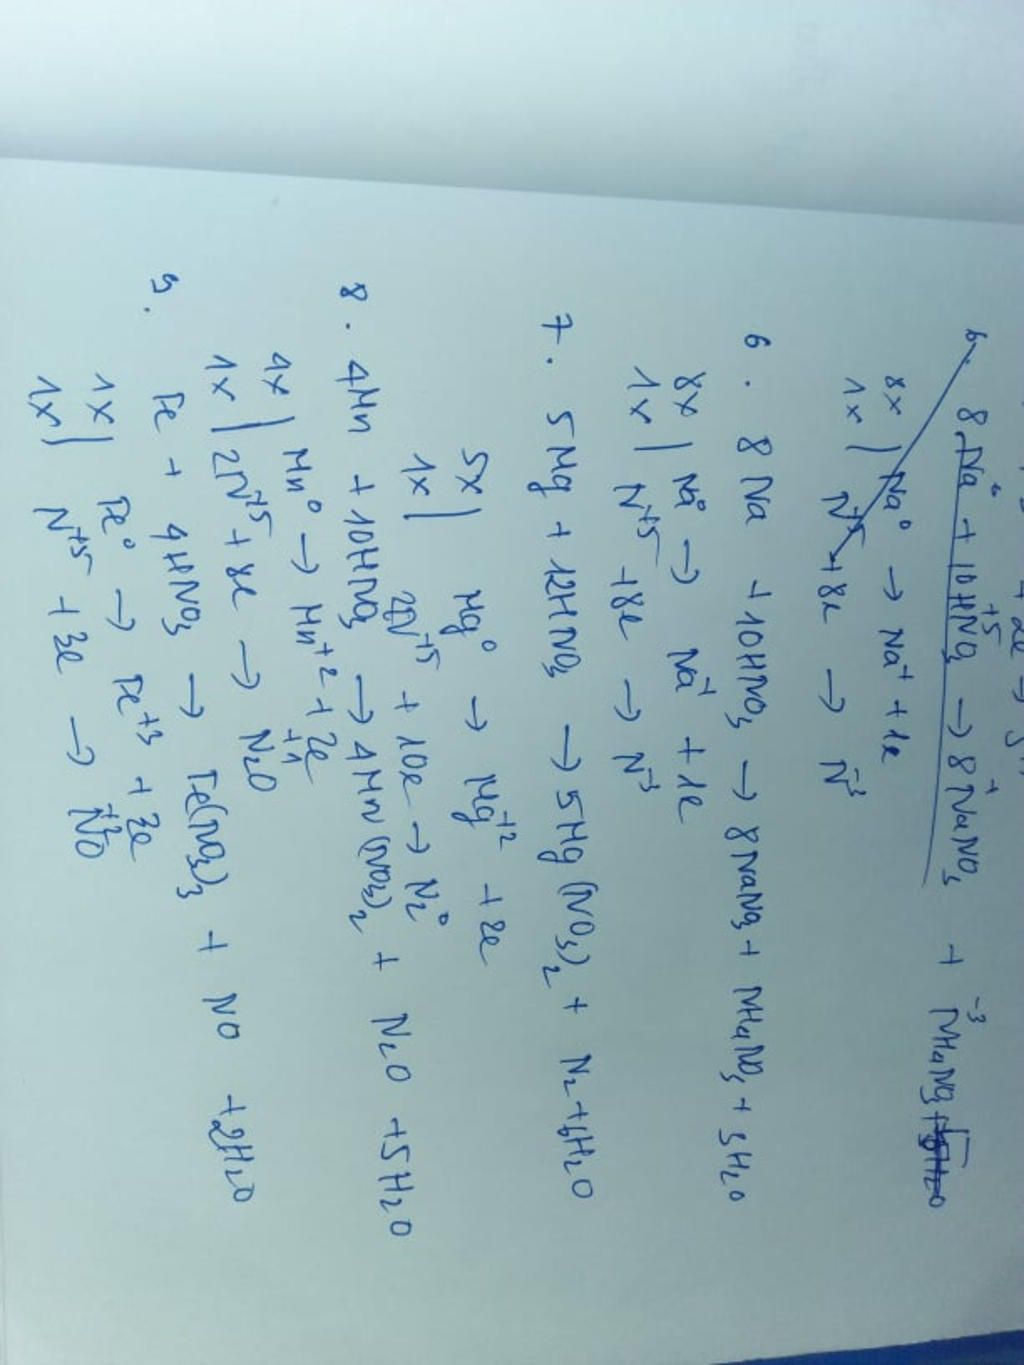 6. 8Na⁰ + 10HN⁺⁵O₃ → 8Na⁺¹NO₃ + N⁻³H₄NO₃ +
8x | Na⁰ → Na⁺ + 1e
1x | N⁺⁵ + 8e → N⁻³
6. 8Na + 10HNO₃ → 8NaNO₃ + NH₄NO₃ + 3H₂O
8x | Na⁰ → Na⁺¹ + 1e
1x | N⁺⁵ + 8e → N⁻³
7. 5Mg + 12HNO₃ → 5Mg(NO₃)₂ + N₂ + 6H₂O
5x | Mg⁰ → Mg⁺² + 2e
1x | 2N⁺⁵ + 10e → N₂⁰
8. 4Mn + 10HNO₃ → 4Mn(NO₃)₂ + N₂O + 5H₂O
4x | Mn⁰ → Mn⁺² + 2e
1x | 2N⁺⁵ + 8e → N₂⁺¹O
9. Fe + 4HNO₃ → Fe(NO₃)₃ + NO + 2H₂O
1x | Fe⁰ → Fe⁺³ + 3e
1x | N⁺⁵ + 3e → N⁺²O